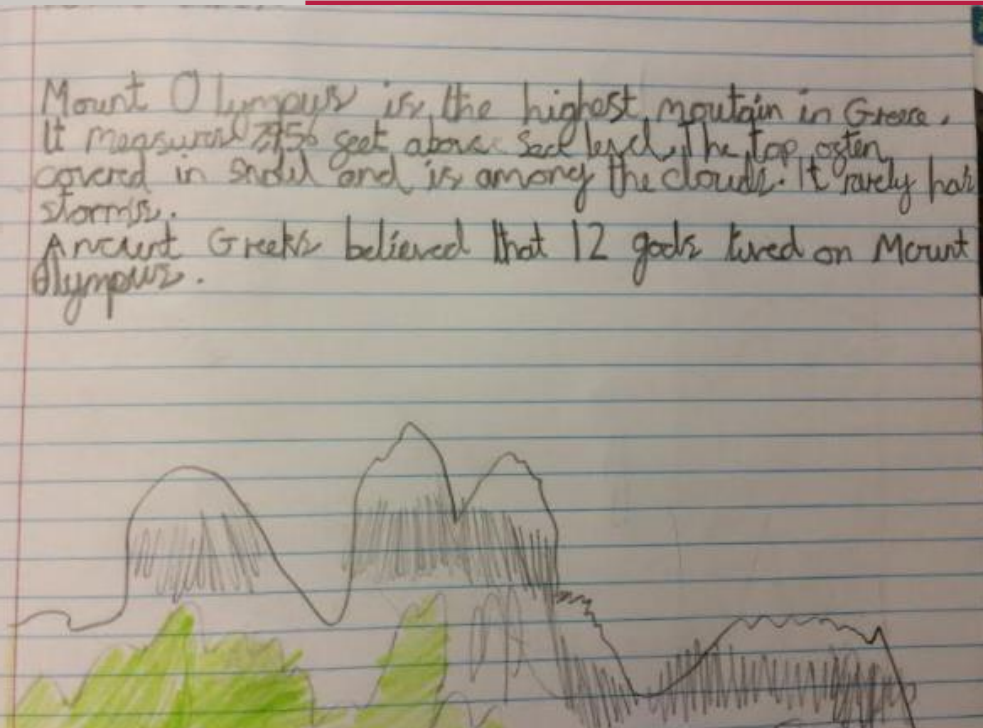 Mount Olympus is the highest moutain in Greece.
It measures feet above sea level. The top often
covered in and is among the clouds. It rarely has
storms.
Ancient Greeks believed that 12 gods lived on Mount
Olympus.